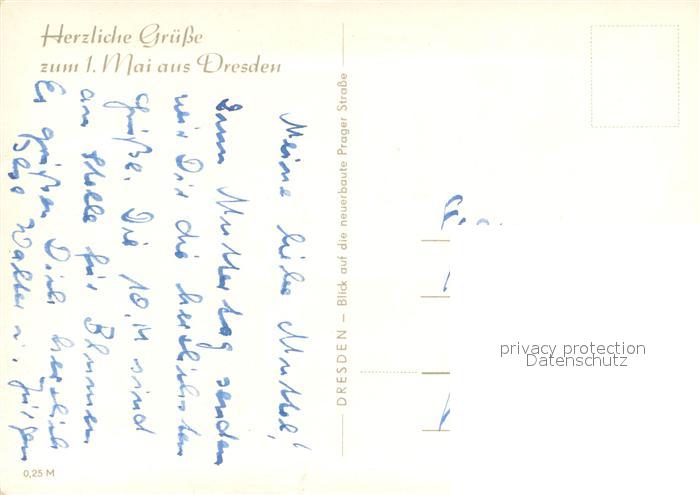 Herzliche Grüße
zum 1. Mai aus Dresden
Meine liebe Mutter!
Zum Muttertag senden
wir Dir die herzlichsten
Grüße. Die 10,M sind
an Stelle für Blumen
Es grüßen Dich herzlich
Walter u. Jürgen
DRESDEN – Blick auf die neuerbaute Prager Straße
privacy protection
Datenschutz
0,25 M